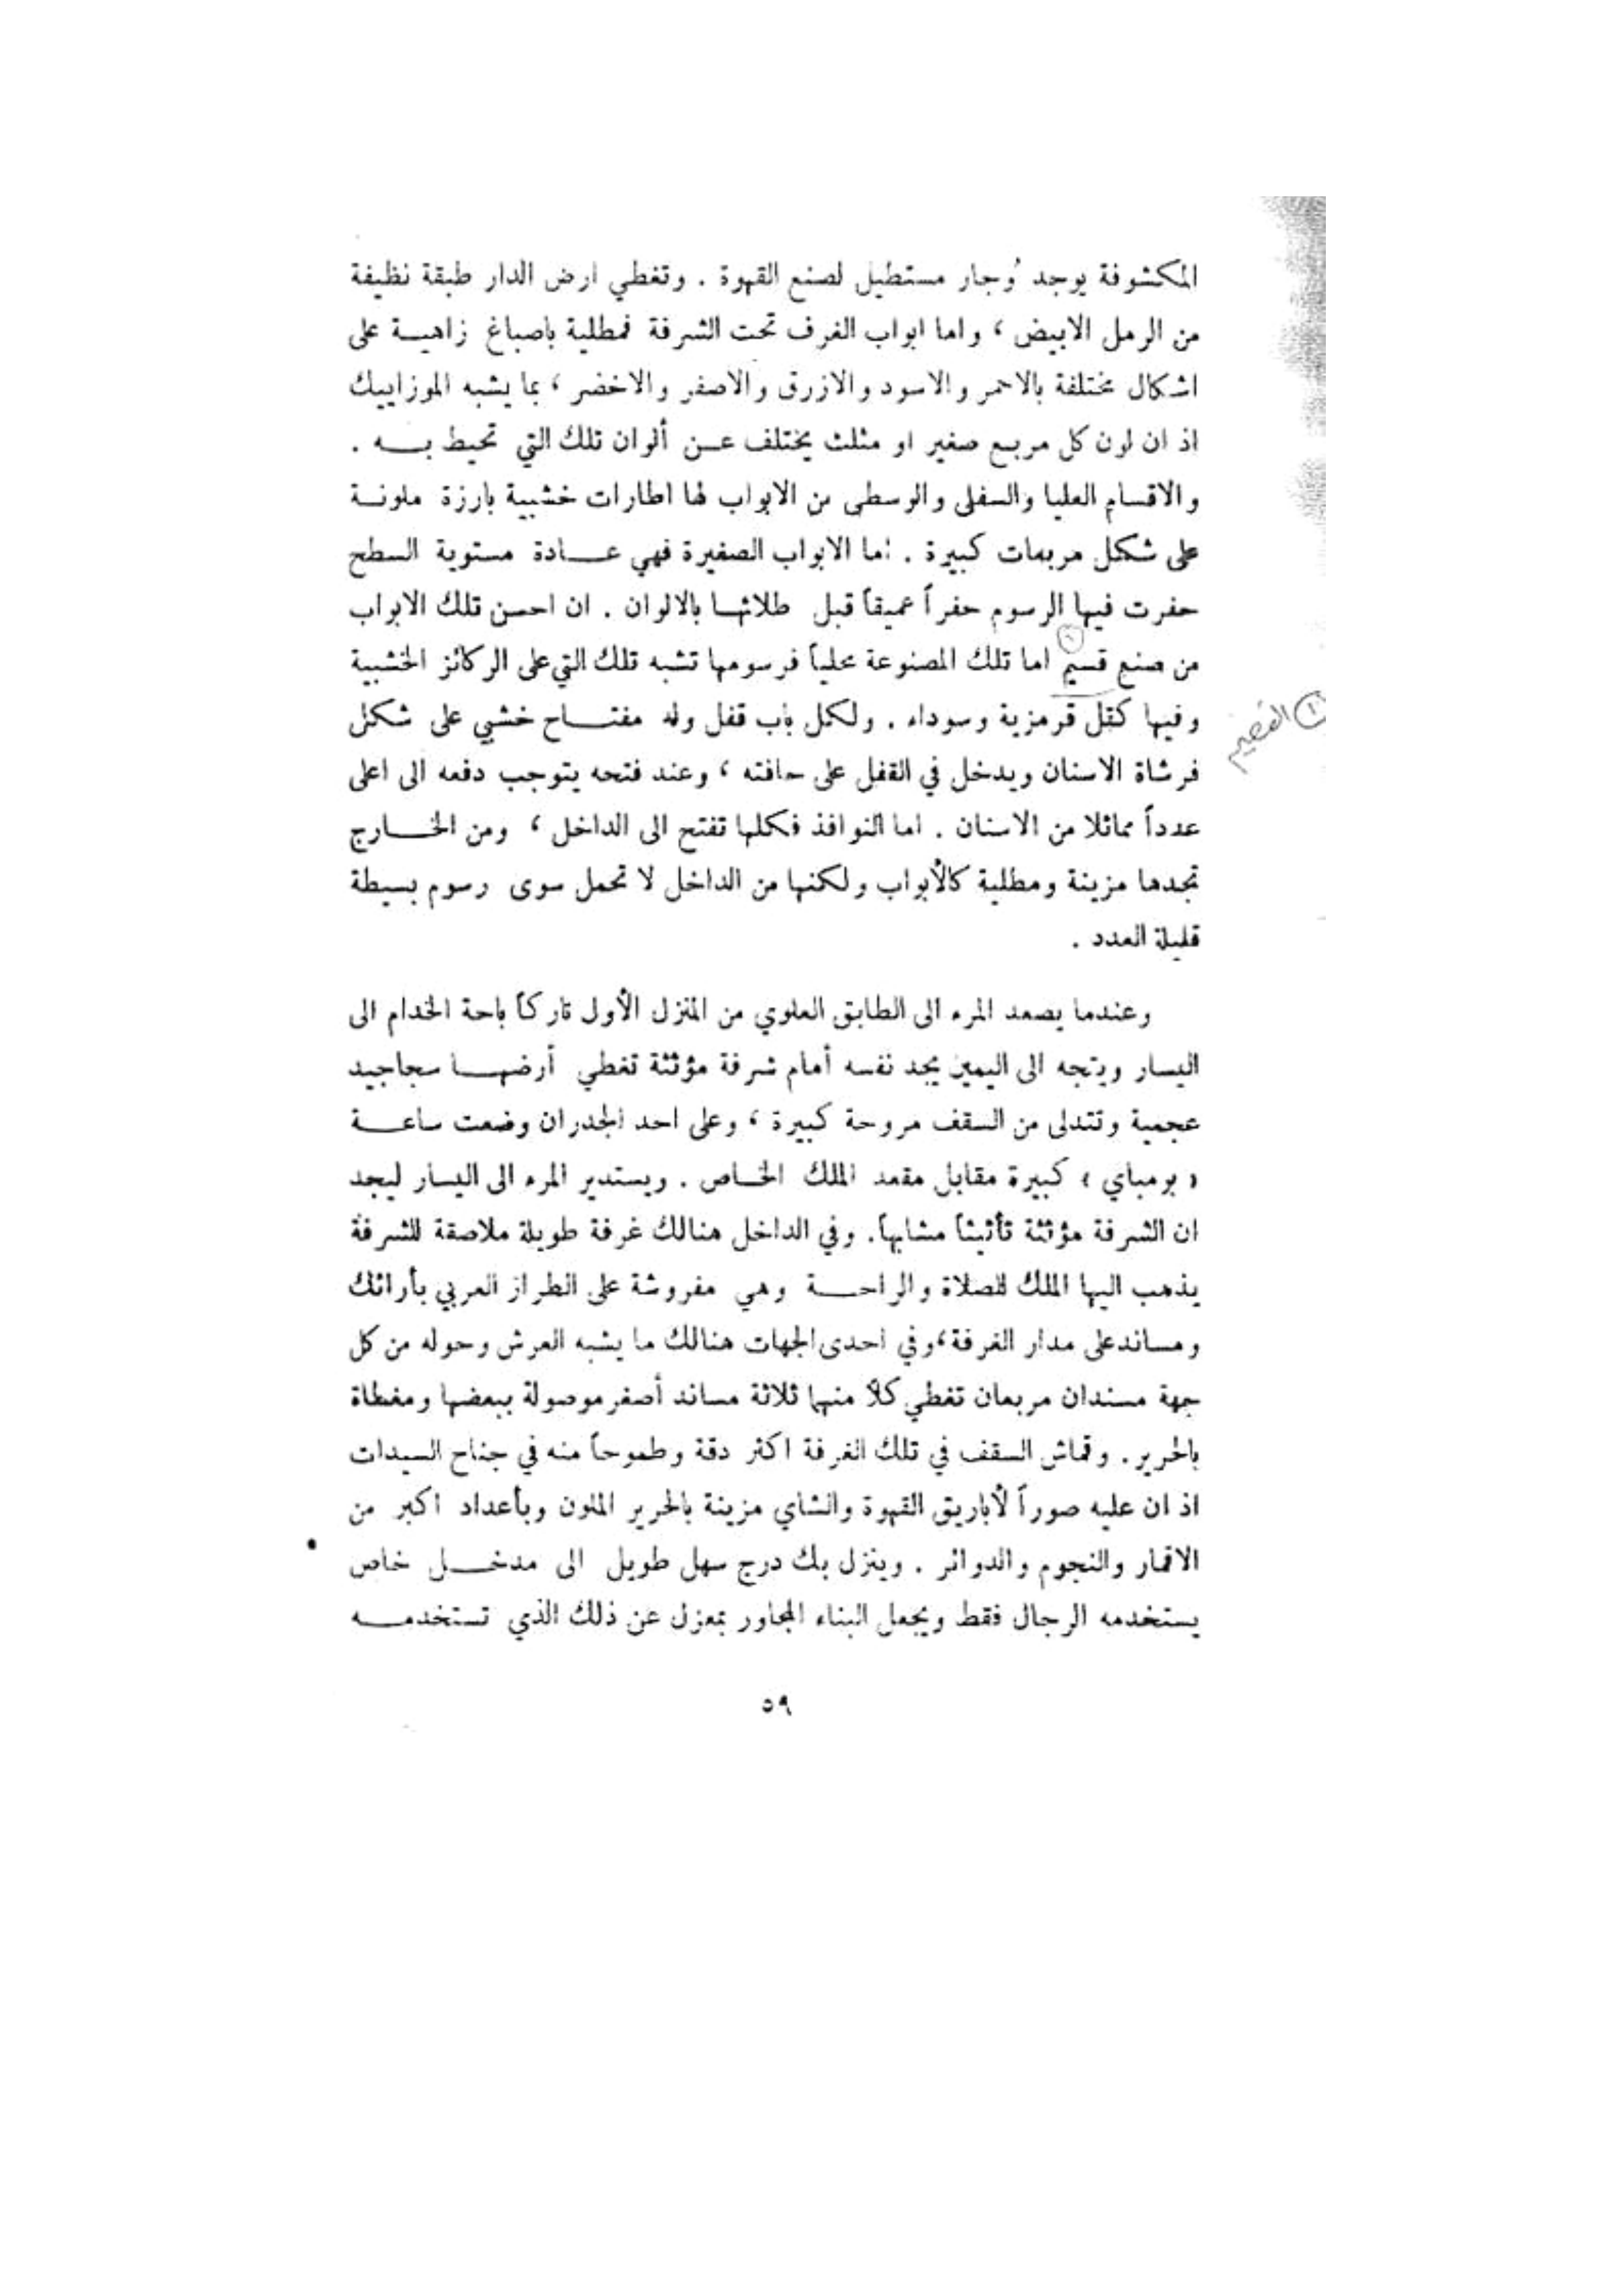 المكشوفة يوجد وُجار مستطيل لصنع القهوة . وتغطي ارض الدار طبقة نظيفة
من الرمل الابيض ، واما ابواب الغرف تحت الشرفة فمطلية باصباغ زاهيـة على
اشكال مختلفة بالاحمر والاسود والازرق والاصفر والاخضر ، بما يشبه الموزاييك
اذ ان لون كل مربع صغير او مثلث يختلف عـن ألوان تلك التي تحيط بـه .
والاقسام العليا والسفلى والوسطى من الابواب لها اطارات خشبية بارزة ملونـة
على شكل مربعات كبيرة . اما الابواب الصغيرة فهي عـادة مستوية السطح
حفرت فيها الرسوم حفراً عميقاً قبل طلائهـا بالالوان . ان احسن تلك الابواب
من صنع قسيم (١) اما تلك المصنوعة محلياً فرسومها تشبه تلك التي على الركائز الخشبية
وفيها كتل قرمزية وسوداء . ولكل باب قفل وله مفتـاح خشبي على شكل
(١) القصيم
فرشاة الاسنان ويدخل في القفل على حافته ، وعند فتحه يتوجب دفعه الى اعلى
عدداً مماثلا من الاسنان . اما النوافذ فكلها تفتح الى الداخل ، ومن الخـارج
تجدها مزينة ومطلية كالأبواب ولكنها من الداخل لا تحمل سوى رسوم بسيطة
قليلة العدد .
وعندما يصعد المرء الى الطابق العلوي من المنزل الأول تاركاً باحة الخدام الى
اليسار ويتجه الى اليمين يجد نفسه أمام شرفة مؤثثة تغطي أرضهـا سجاجيد
عجمية وتتدلى من السقف مروحة كبيرة ، وعلى احد الجدران وضعت ساعـة
« بومباي » كبيرة مقابل مقعد الملك الخـاص . ويستدير المرء الى اليسار ليجد
ان الشرفة مؤثثة تأثيثاً مشابهاً. وفي الداخل هنالك غرفة طويلة ملاصقة للشرفة
يذهب اليها الملك للصلاة والراحـة وهي مفروشة على الطراز العربي بأرائك
ومساند على مدار الغرفة،وفي احدى الجهات هنالك ما يشبه العرش وحوله من كل
جهة مسندان مربعان تغطي كلاً منهما ثلاثة مساند أصغر موصولة ببعضها ومغطاة
بالحرير . وقماش السقف في تلك الغرفة اكثر دقة وطموحاً منه في جناح السيدات
اذ ان عليه صوراً لأباريق القهوة والشاي مزينة بالحرير الملون وبأعداد اكبر من
الاقمار والنجوم والدوائر . وينزل بك درج سهل طويل الى مدخـل خاص
يستخدمه الرجال فقط ويجعل البناء المجاور بمعزل عن ذلك الذي تستخدمـه
٥٩